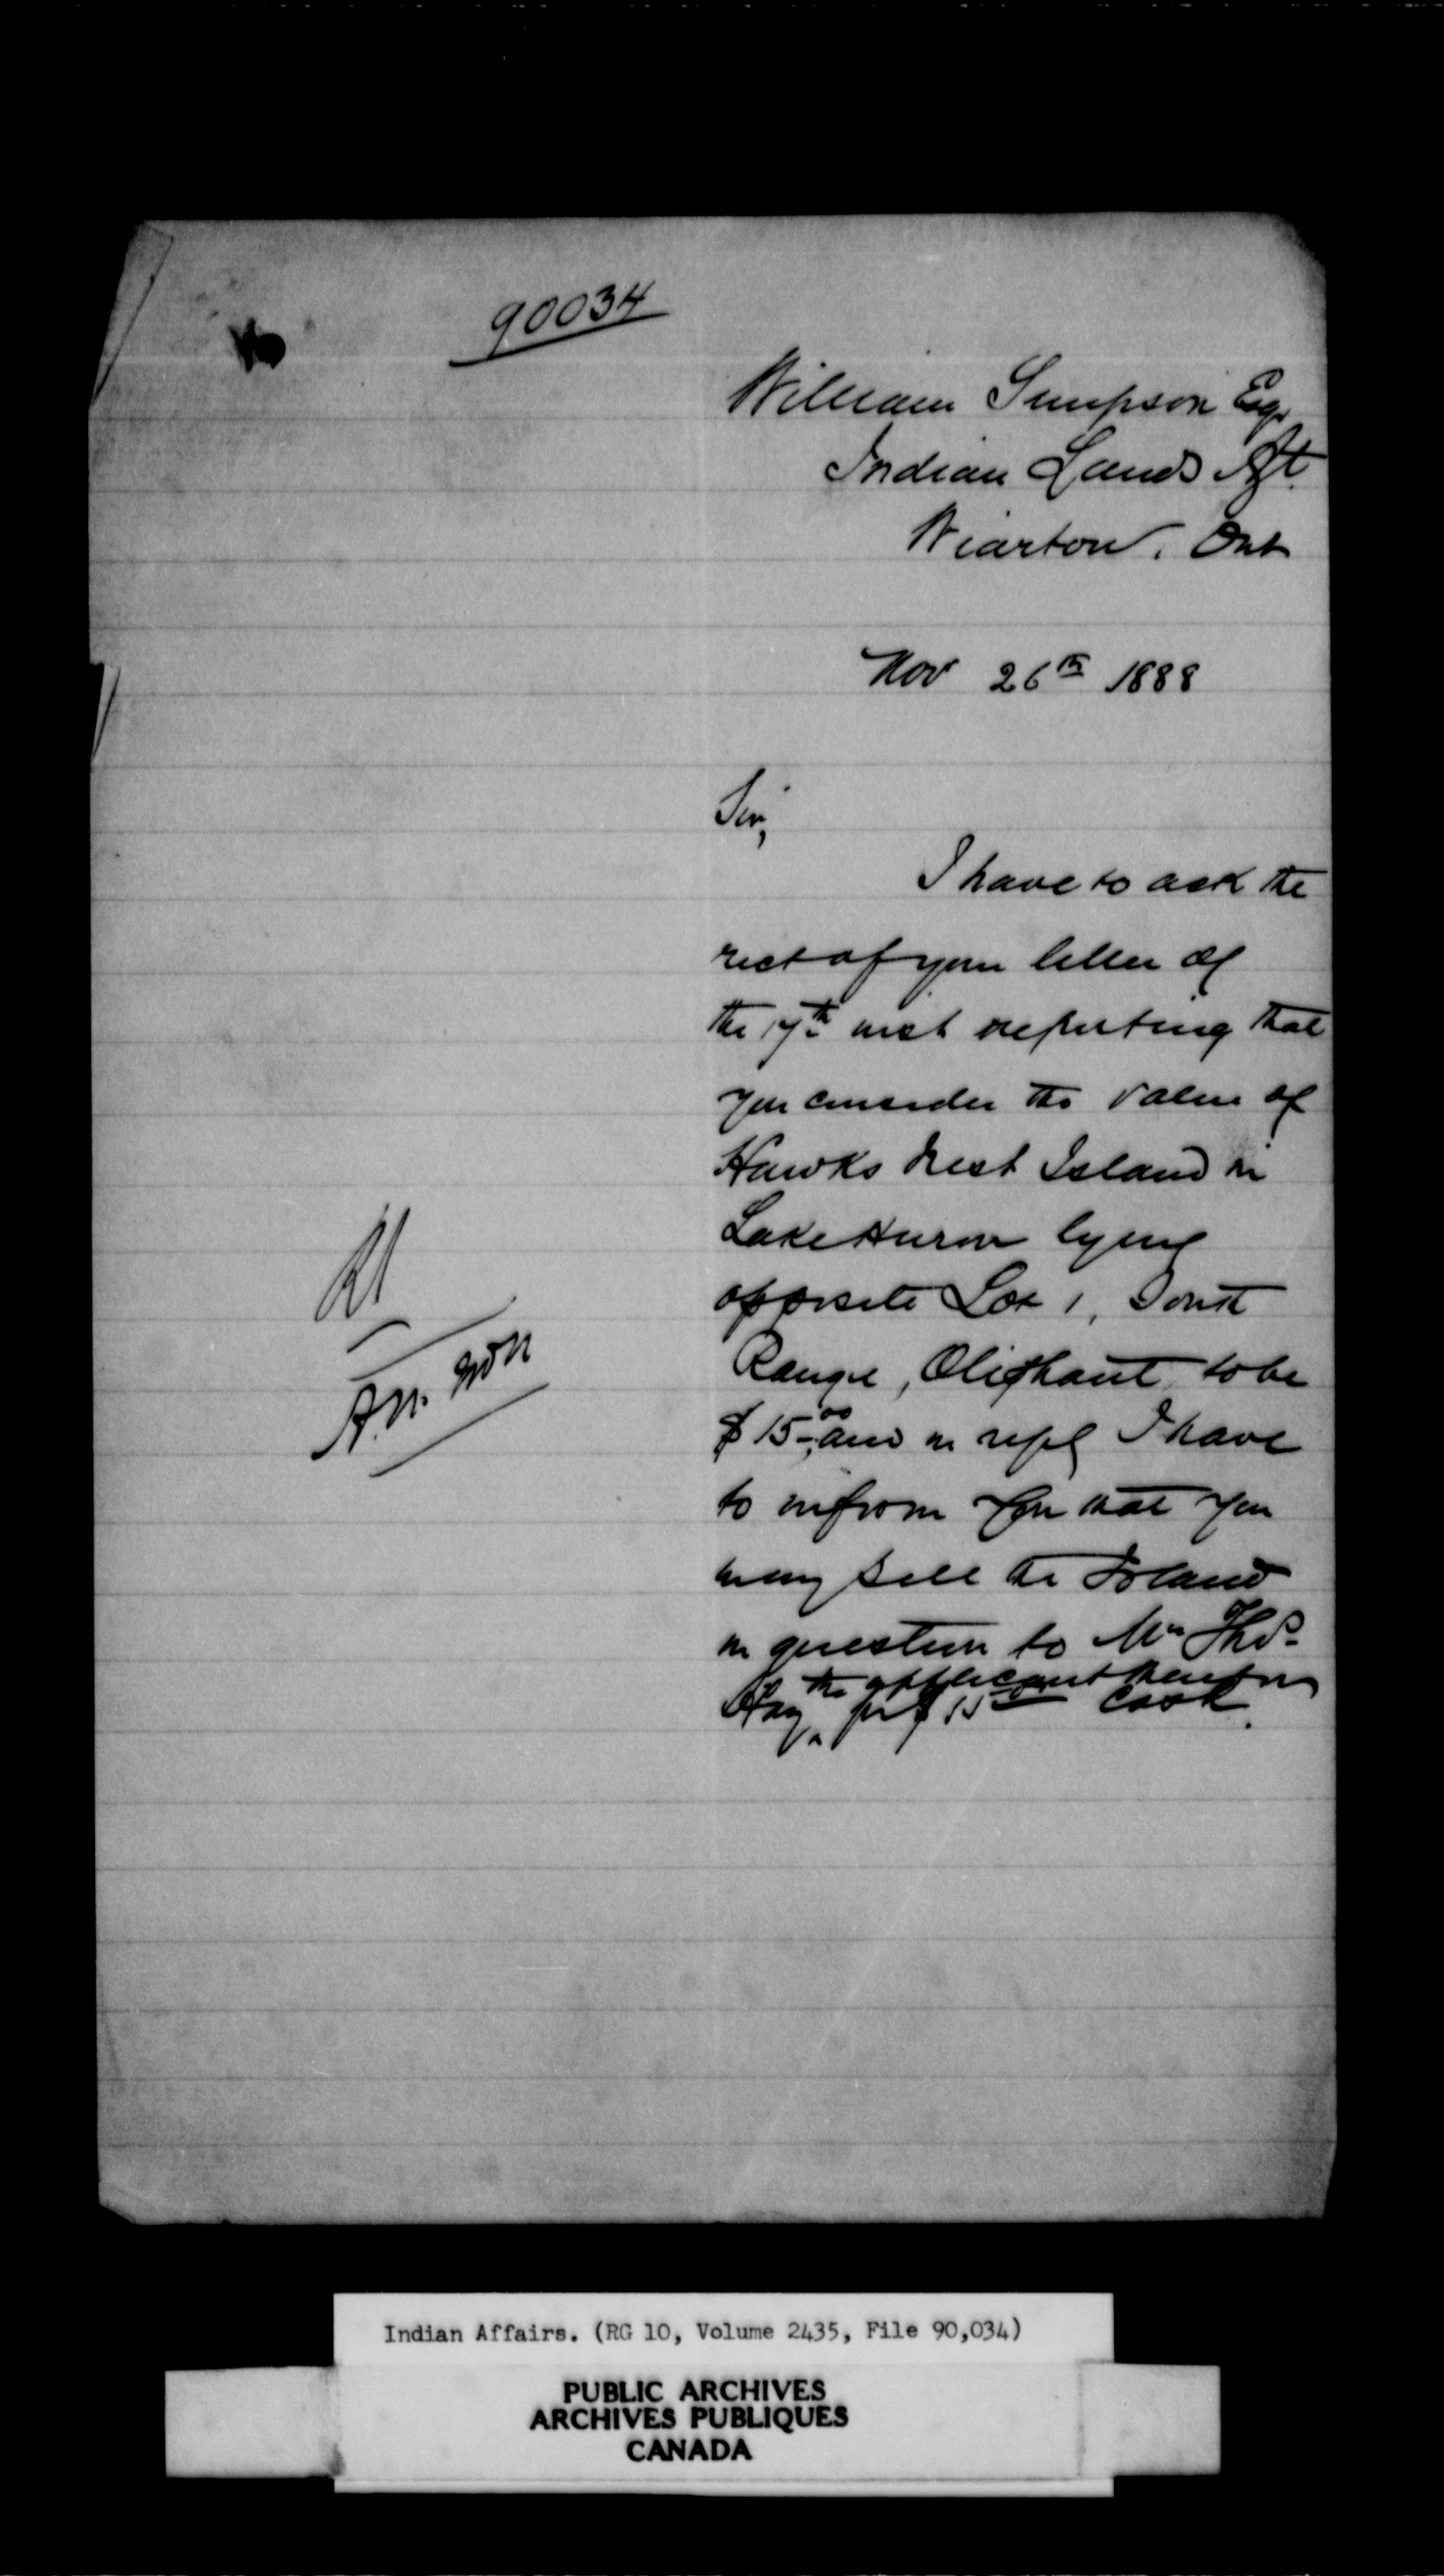 90034
William Simpson Esq
Indian Lands Agt.
Wiarton, Ont
Nov 26th 1888
Sir,
I have to ack the
rect of your letter of
the 17th inst reporting that
you consider the value of
Hawks Nest Island in
Lake Huron lying
opposite Lot 1, South
Range, Oliphant to be
$15.00 and in reply I have
to inform you that you
may sell the Island
in question to Mr Thos.
the applicant therefor
Hay ^ for $15 00 cash.
Indian Affairs. (RG 10, Volume 2435, File 90,034)
PUBLIC ARCHIVES
ARCHIVES PUBLIQUES
CANADA